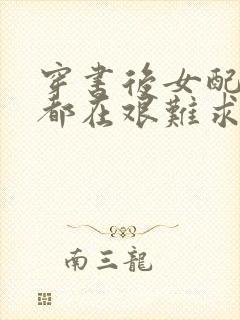 穿書後女配
都在艱難求
南三龍